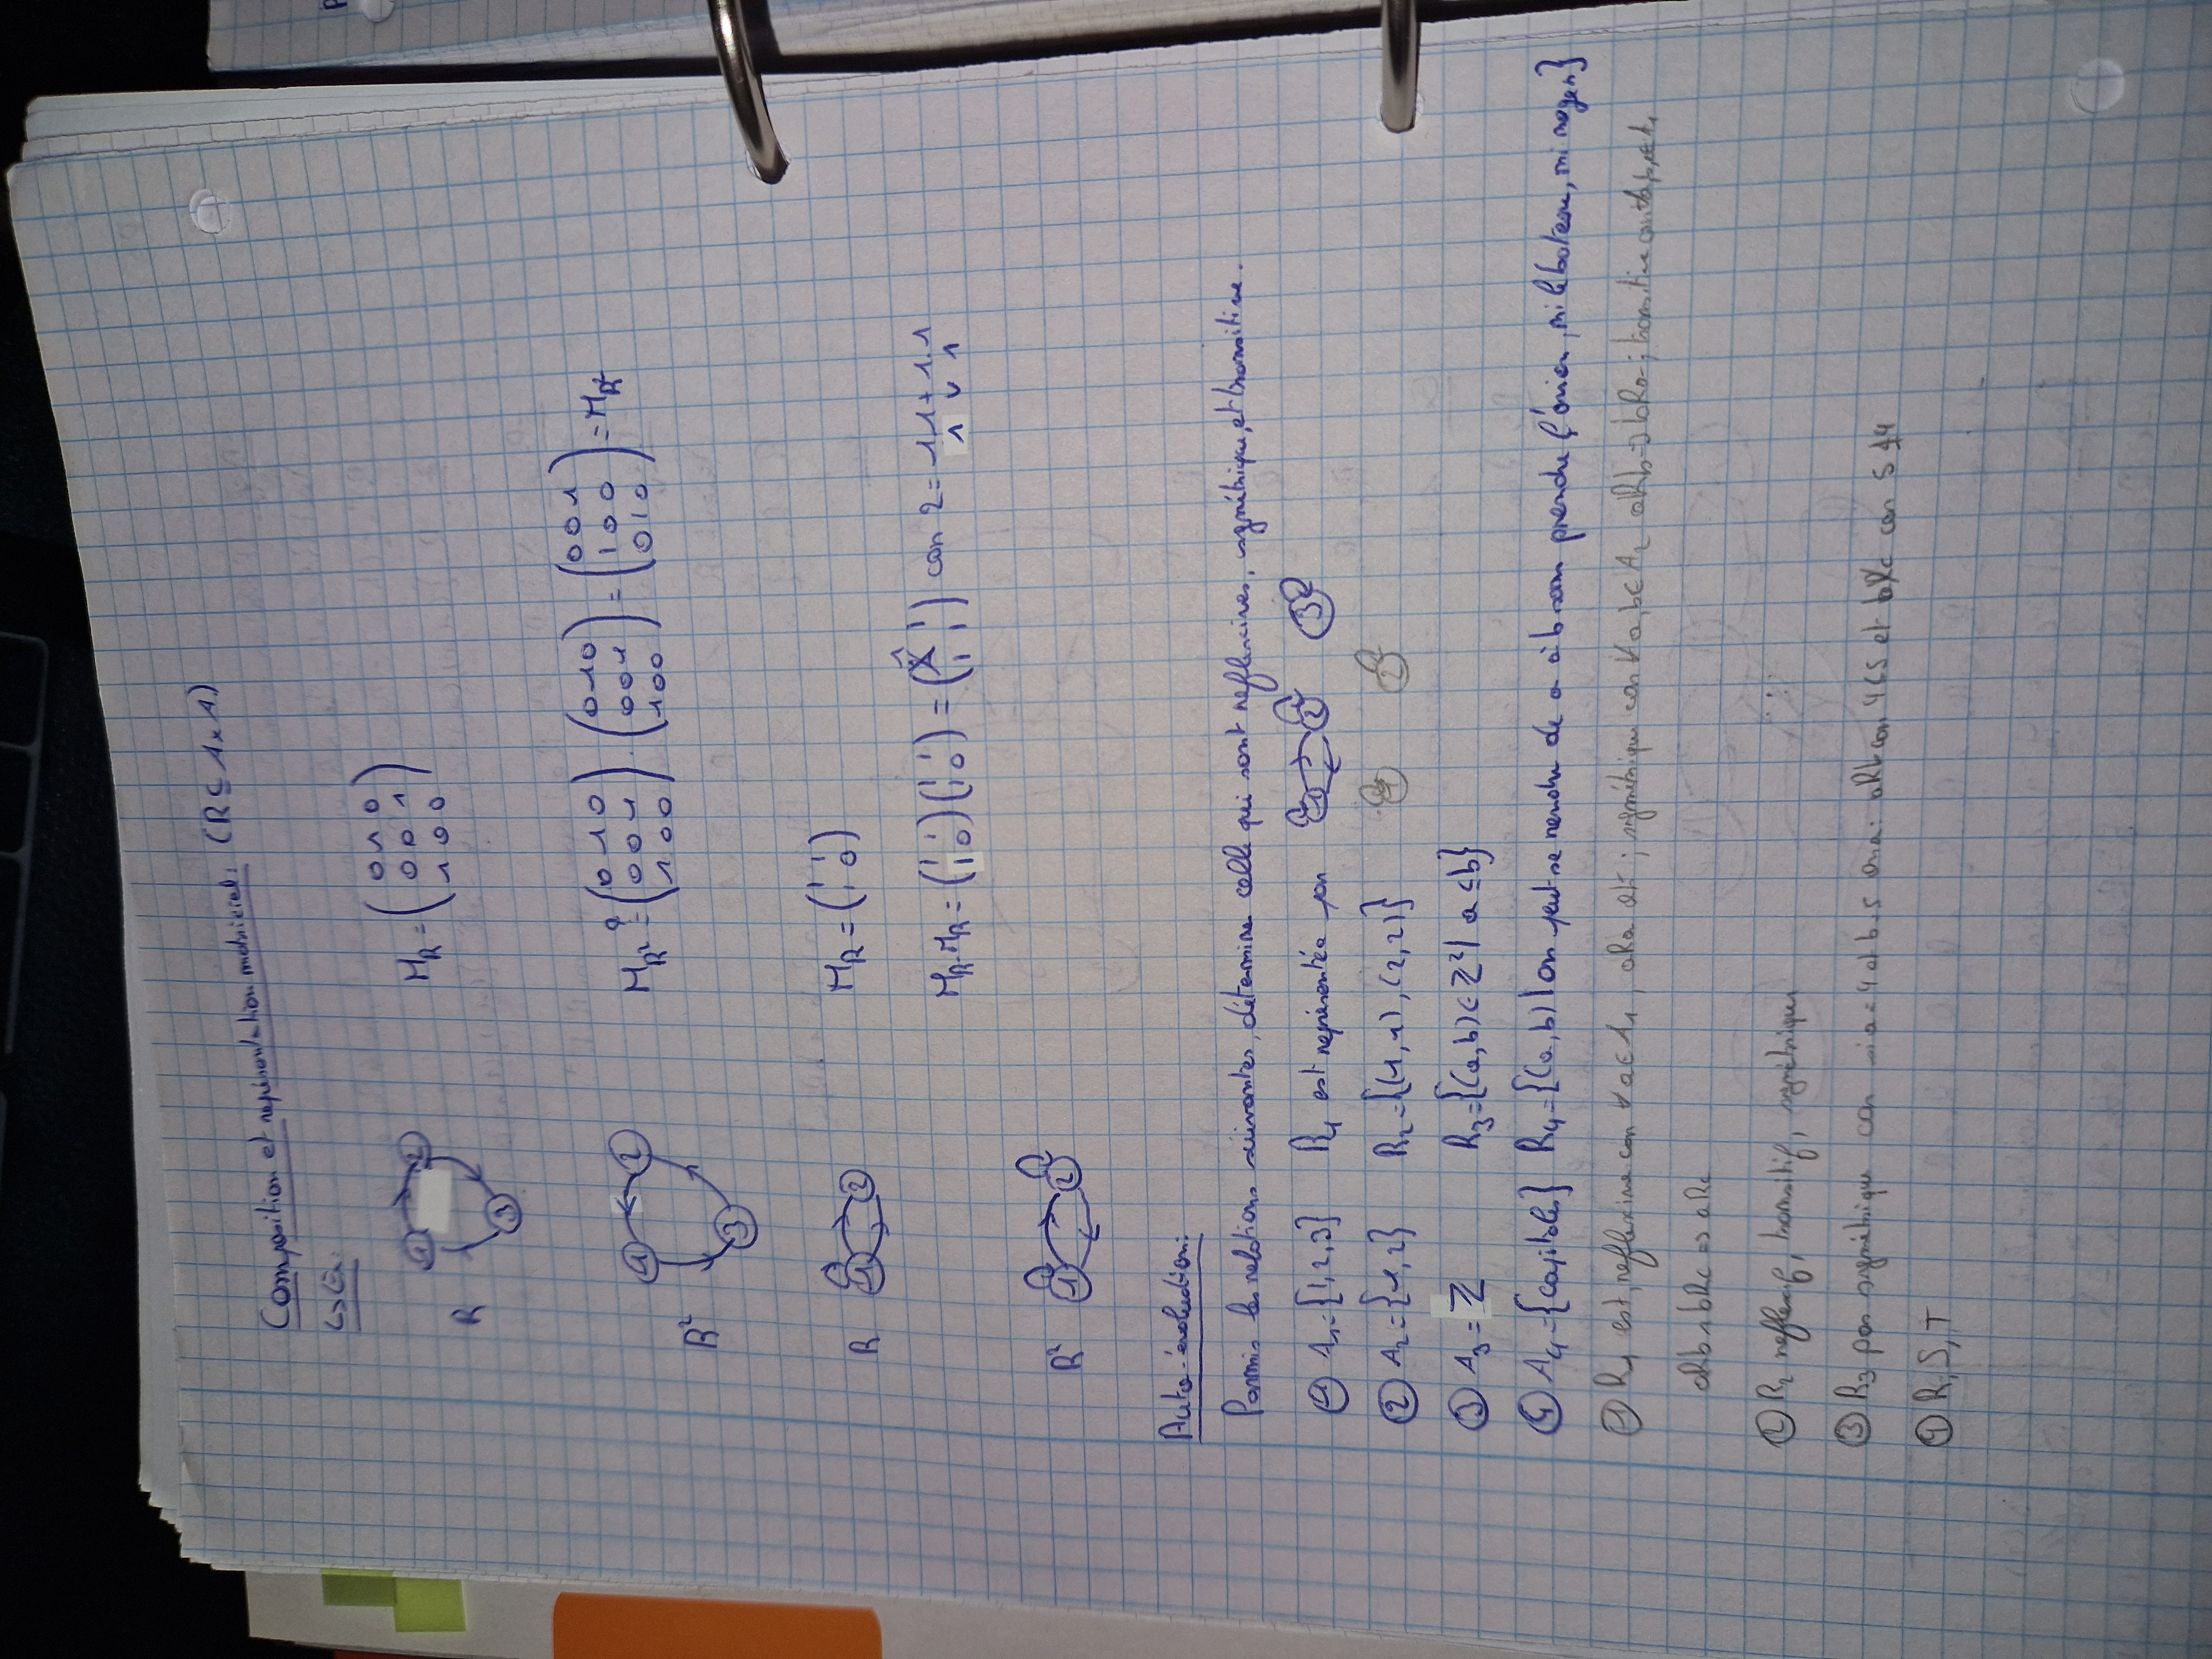 Composition et représentation matriciel: (R ⊆ A × A)
↳ Ex:
1 2 3
R
M_R = (0 1 0
0 0 1
1 0 0)
1 2 3
R²
M_R² ?= (0 1 0
0 0 1
1 0 0) . (0 1 0
0 0 1
1 0 0) = (0 0 1
1 0 0
0 1 0) = M_R²
R 1 2
M_R = (1 1
1 0)
M_R . M_R = (1 1
1 0) (1 1
1 0) = (1 1
1 1) car 2 = 1.1 + 1.1
1 ∨ 1
R² 1 2
Auto-évolution:
Parmis les relations suivantes, détermine celle qui sont reflexives, symétrique, et transitive.
① A₁ = {1, 2, 3} R₁ est représentée par 1 2 3
② A₂ = {1, 2} R₂ = {(1, 1), (2, 2)} 1 2
③ A₃ = ℤ R₃ = {(a, b) ∈ ℤ² | a ≤ b}
④ A₄ = {capitales} R₄ = {(a, b) | on peut se rendre de a à b sans prendre l'avion, ni le bateau, ni nager}
① R₁ est reflexive car ∀ a ∈ A₁, aRa ; symétrique car ∀ a, b ∈ A₂ aRb => bRa ; transitive car
aRb ∧ bRc => aRc
② R₂ reflexif, transitif, symétrique
③ R₃ pas symétrique car si a = 4 et b = 5 on a: aRb car 4 ≤ 5 et car 5 ≰ 4
④ R, S, T